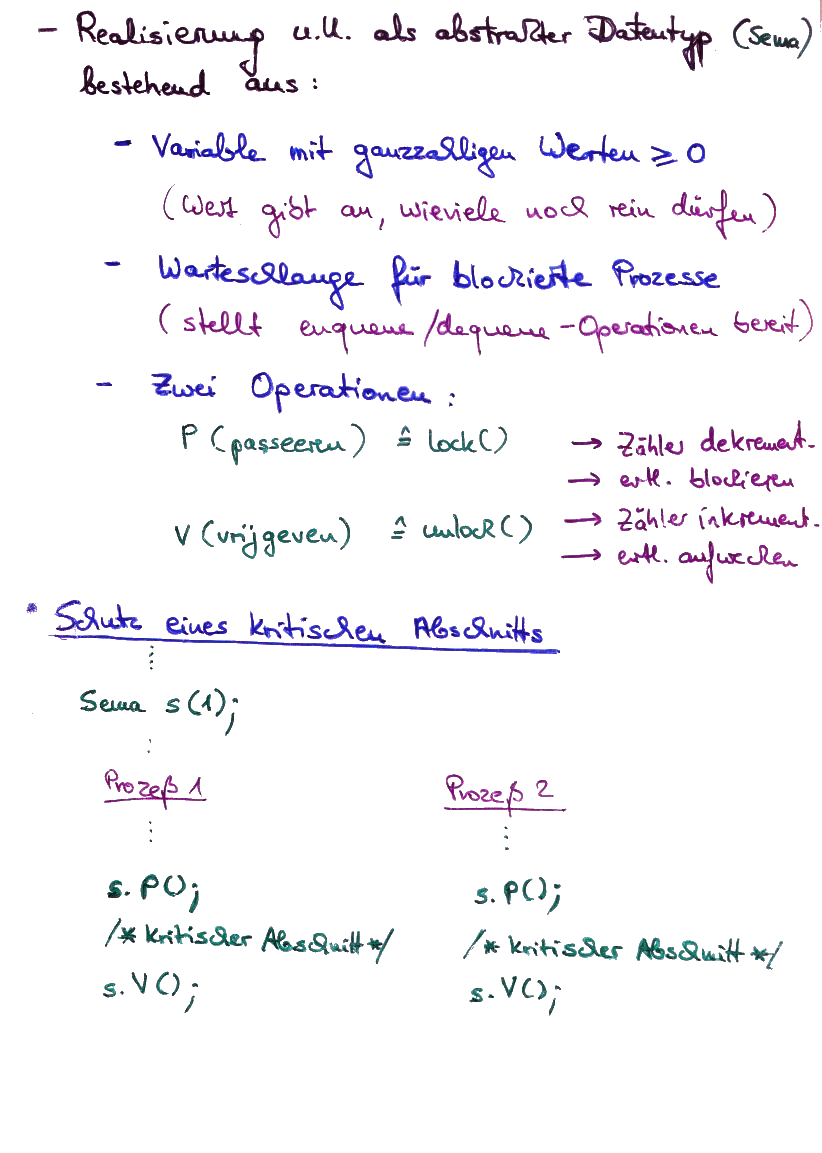 - Realisierung u.U. als abstrakter Datentyp (Sema)
bestehend aus:
- Variable mit ganzzahligen Werten ≥ 0
(Wert gibt an, wieviele noch rein dürfen)
- Warteschlange für blockierte Prozesse
(stellt enqueue/dequeue-Operationen bereit)
- Zwei Operationen:
P (passeeren) ≙ lock() → Zähler dekrement.
→ evtl. blockieren
V (vrijgeven) ≙ unlock() → Zähler inkrement.
→ evtl. aufwecken
* Schutz eines kritischen Abschnitts
⋮
Sema s(1);
⋮
Prozeß 1 Prozeß 2
⋮ ⋮
s.P(); s.P();
/* kritischer Abschnitt */ /* kritischer Abschnitt */
s.V(); s.V();